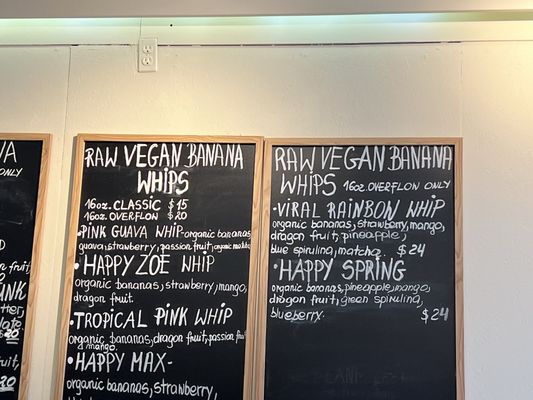 VA
ONLY
fruit,
UNK
tter,
late
20
20
RAW VEGAN BANANA
WHIPS
16oz. CLASSIC $15
16oz. OVERFLON $20
•PINK GUAVA WHIP-organic bananas,
guava, strawberry, passion fruit, organic
•HAPPY ZOE WHIP
organic bananas, strawberry, mango,
dragon fruit.
•TROPICAL PINK WHIP
organic bananas, dragon fruit, passion fruit
& mango.
•HAPPY MAX-
organic bananas, strawberry,
RAW VEGAN BANANA
WHIPS 16oz. OVERFLON ONLY
•VIRAL RAINBOW WHIP
organic bananas, strawberry, mango,
dragon fruit, pineapple,
blue spirulina, matcha. $24
•HAPPY SPRING
organic bananas, pineapple, mango,
dragon fruit, green spirulina,
blueberry. $24